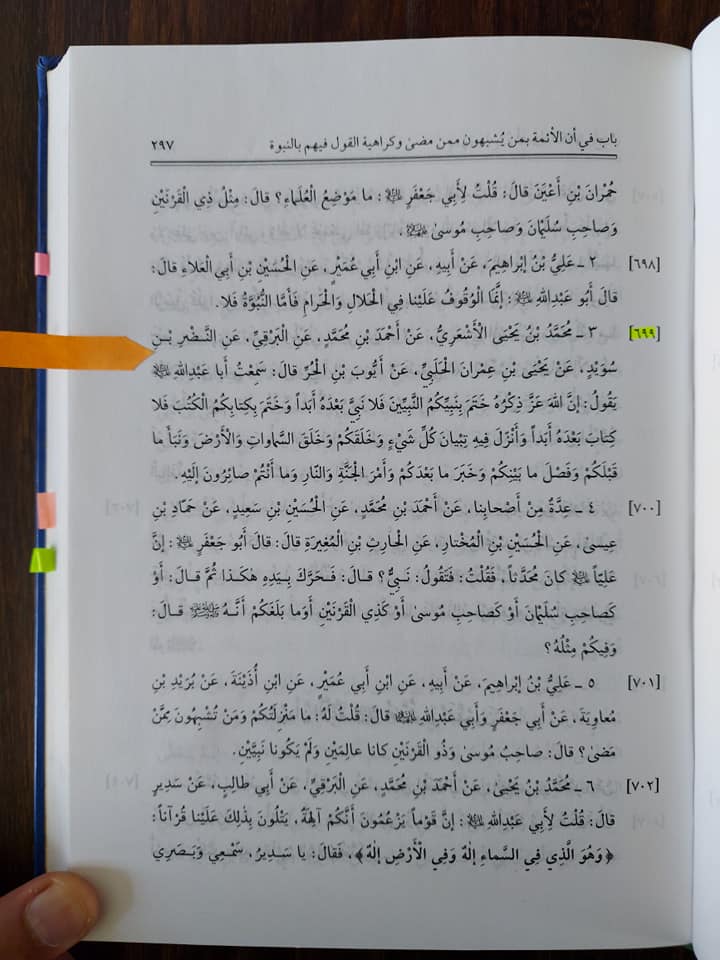 باب في أن الأئمة بمن يُشبهون ممن مضىٰ وكراهية القول فيهم بالنبوة ٢٩٧
حُمْرانَ بْنِ أَعْيَنَ قالَ: قُلْتُ لِأَبِي جَعْفَرٍ ﷺ: ما مَوْضِعُ الْعُلَماءِ؟ قالَ: مِثْلُ ذِي الْقَرْنَيْنِ
وَصاحِبِ سُلَيْمَانَ وَصاحِبِ مُوسىٰ ﷺ.
[٦٩٨] ٢ ـ عَلِيُّ بْنُ إِبْراهِيمَ، عَنْ أَبِيهِ، عَنِ ابْنِ أَبِي عُمَيْرٍ، عَنِ الْحُسَيْنِ بْنِ أَبِي الْعَلاءِ قالَ:
قالَ أَبُو عَبْدِاللهِ ﷺ: إِنَّمَا الْوُقُوفُ عَلَيْنا فِي الْحَلالِ وَالْحَرامِ فَأَمَّا النُّبُوَّةُ فَلا.
[٦٩٩] ٣ ـ مُحَمَّدُ بْنُ يَحْيَى الْأَشْعَرِيُّ، عَنْ أَحْمَدَ بْنِ مُحَمَّدٍ، عَنِ الْبَرْقِيِّ، عَنِ النَّضْرِ بْنِ
سُوَيْدٍ، عَنْ يَحْيَى بْنِ عِمْرانَ الْحَلَبِيِّ، عَنْ أَيُّوبَ بْنِ الْحُرِّ قالَ: سَمِعْتُ أَبا عَبْدِاللهِ ﷺ
يَقُولُ: إِنَّ اللهَ عَزَّ ذِكْرُهُ خَتَمَ بِنَبِيِّكُمُ النَّبِيِّينَ فَلا نَبِيَّ بَعْدَهُ أَبَداً وَخَتَمَ بِكِتابِكُمُ الْكُتُبَ فَلا
كِتابَ بَعْدَهُ أَبَداً وَأَنْزَلَ فِيهِ تِبْيانَ كُلِّ شَيْءٍ وَخَلْقَكُمْ وَخَلْقَ السَّماواتِ وَالْأَرْضَ وَنَبَأَ ما
قَبْلَكُمْ وَفَصْلَ ما بَيْنِكُمْ وَخَبَرَ ما بَعْدَكُمْ وَأَمْرَ الْجَنَّةِ وَالنّارِ وَما أَنْتُمْ صائِرُونَ إِلَيْهِ.
[٧٠٠] ٤ ـ عِدَّةٌ مِنْ أَصْحابِنا، عَنْ أَحْمَدَ بْنِ مُحَمَّدٍ، عَنِ الْحُسَيْنِ بْنِ سَعِيدٍ، عَنْ حَمّادِ بْنِ
عِيسىٰ، عَنِ الْحُسَيْنِ بْنِ الْمُخْتارِ، عَنِ الْحارِثِ بْنِ الْمُغِيرَةِ قالَ: قالَ أَبُو جَعْفَرٍ ﷺ: إِنَّ
عَلِيّاً ﷺ كانَ مُحَدَّثاً، فَقُلْتُ: فَتَقُولُ: نَبِيٌّ؟ قالَ: فَحَرَّكَ بِيَدِهِ هٰكَذا ثُمَّ قالَ: أَوْ
كَصاحِبِ سُلَيْمَانَ أَوْ كَصاحِبِ مُوسىٰ أَوْ كَذِي الْقَرْنَيْنِ أَوَما بَلَغَكُمْ أَنَّهُ ﷺ قالَ:
وَفِيكُمْ مِثْلُهُ؟
[٧٠١] ٥ ـ عَلِيُّ بْنُ إِبْراهِيمَ، عَنْ أَبِيهِ، عَنِ ابْنِ أَبِي عُمَيْرٍ، عَنِ ابْنِ أُذَيْنَةَ، عَنْ بُرَيْدِ بْنِ
مُعاوِيَةَ، عَنْ أَبِي جَعْفَرٍ وَأَبِي عَبْدِاللهِ ﷺ قالَ: قُلْتُ لَهُ: ما مَنْزِلَتُكُمْ وَمَنْ تُشْبِهُونَ مِمَّنْ
مَضىٰ؟ قالَ: صاحِبُ مُوسىٰ وَذُو الْقَرْنَيْنِ كانا عالِمَيْنِ وَلَمْ يَكُونا نَبِيَّيْنِ.
[٧٠٢] ٦ ـ مُحَمَّدُ بْنُ يَحْيىٰ، عَنْ أَحْمَدَ بْنِ مُحَمَّدٍ، عَنِ الْبَرْقِيِّ، عَنْ أَبِي طالِبٍ، عَنْ سَدِيرٍ
قالَ: قُلْتُ لِأَبِي عَبْدِاللهِ ﷺ: إِنَّ قَوْماً يَزْعُمُونَ أَنَّكُمْ آلِهَةٌ، يَتْلُونَ بِذٰلِكَ عَلَيْنا قُرْآناً:
﴿وَهُوَ الَّذِي فِي السَّماءِ إِلٰهٌ وَفِي الْأَرْضِ إِلٰهٌ﴾، فَقالَ: يا سَدِيرُ، سَمْعِي وَبَصَرِي